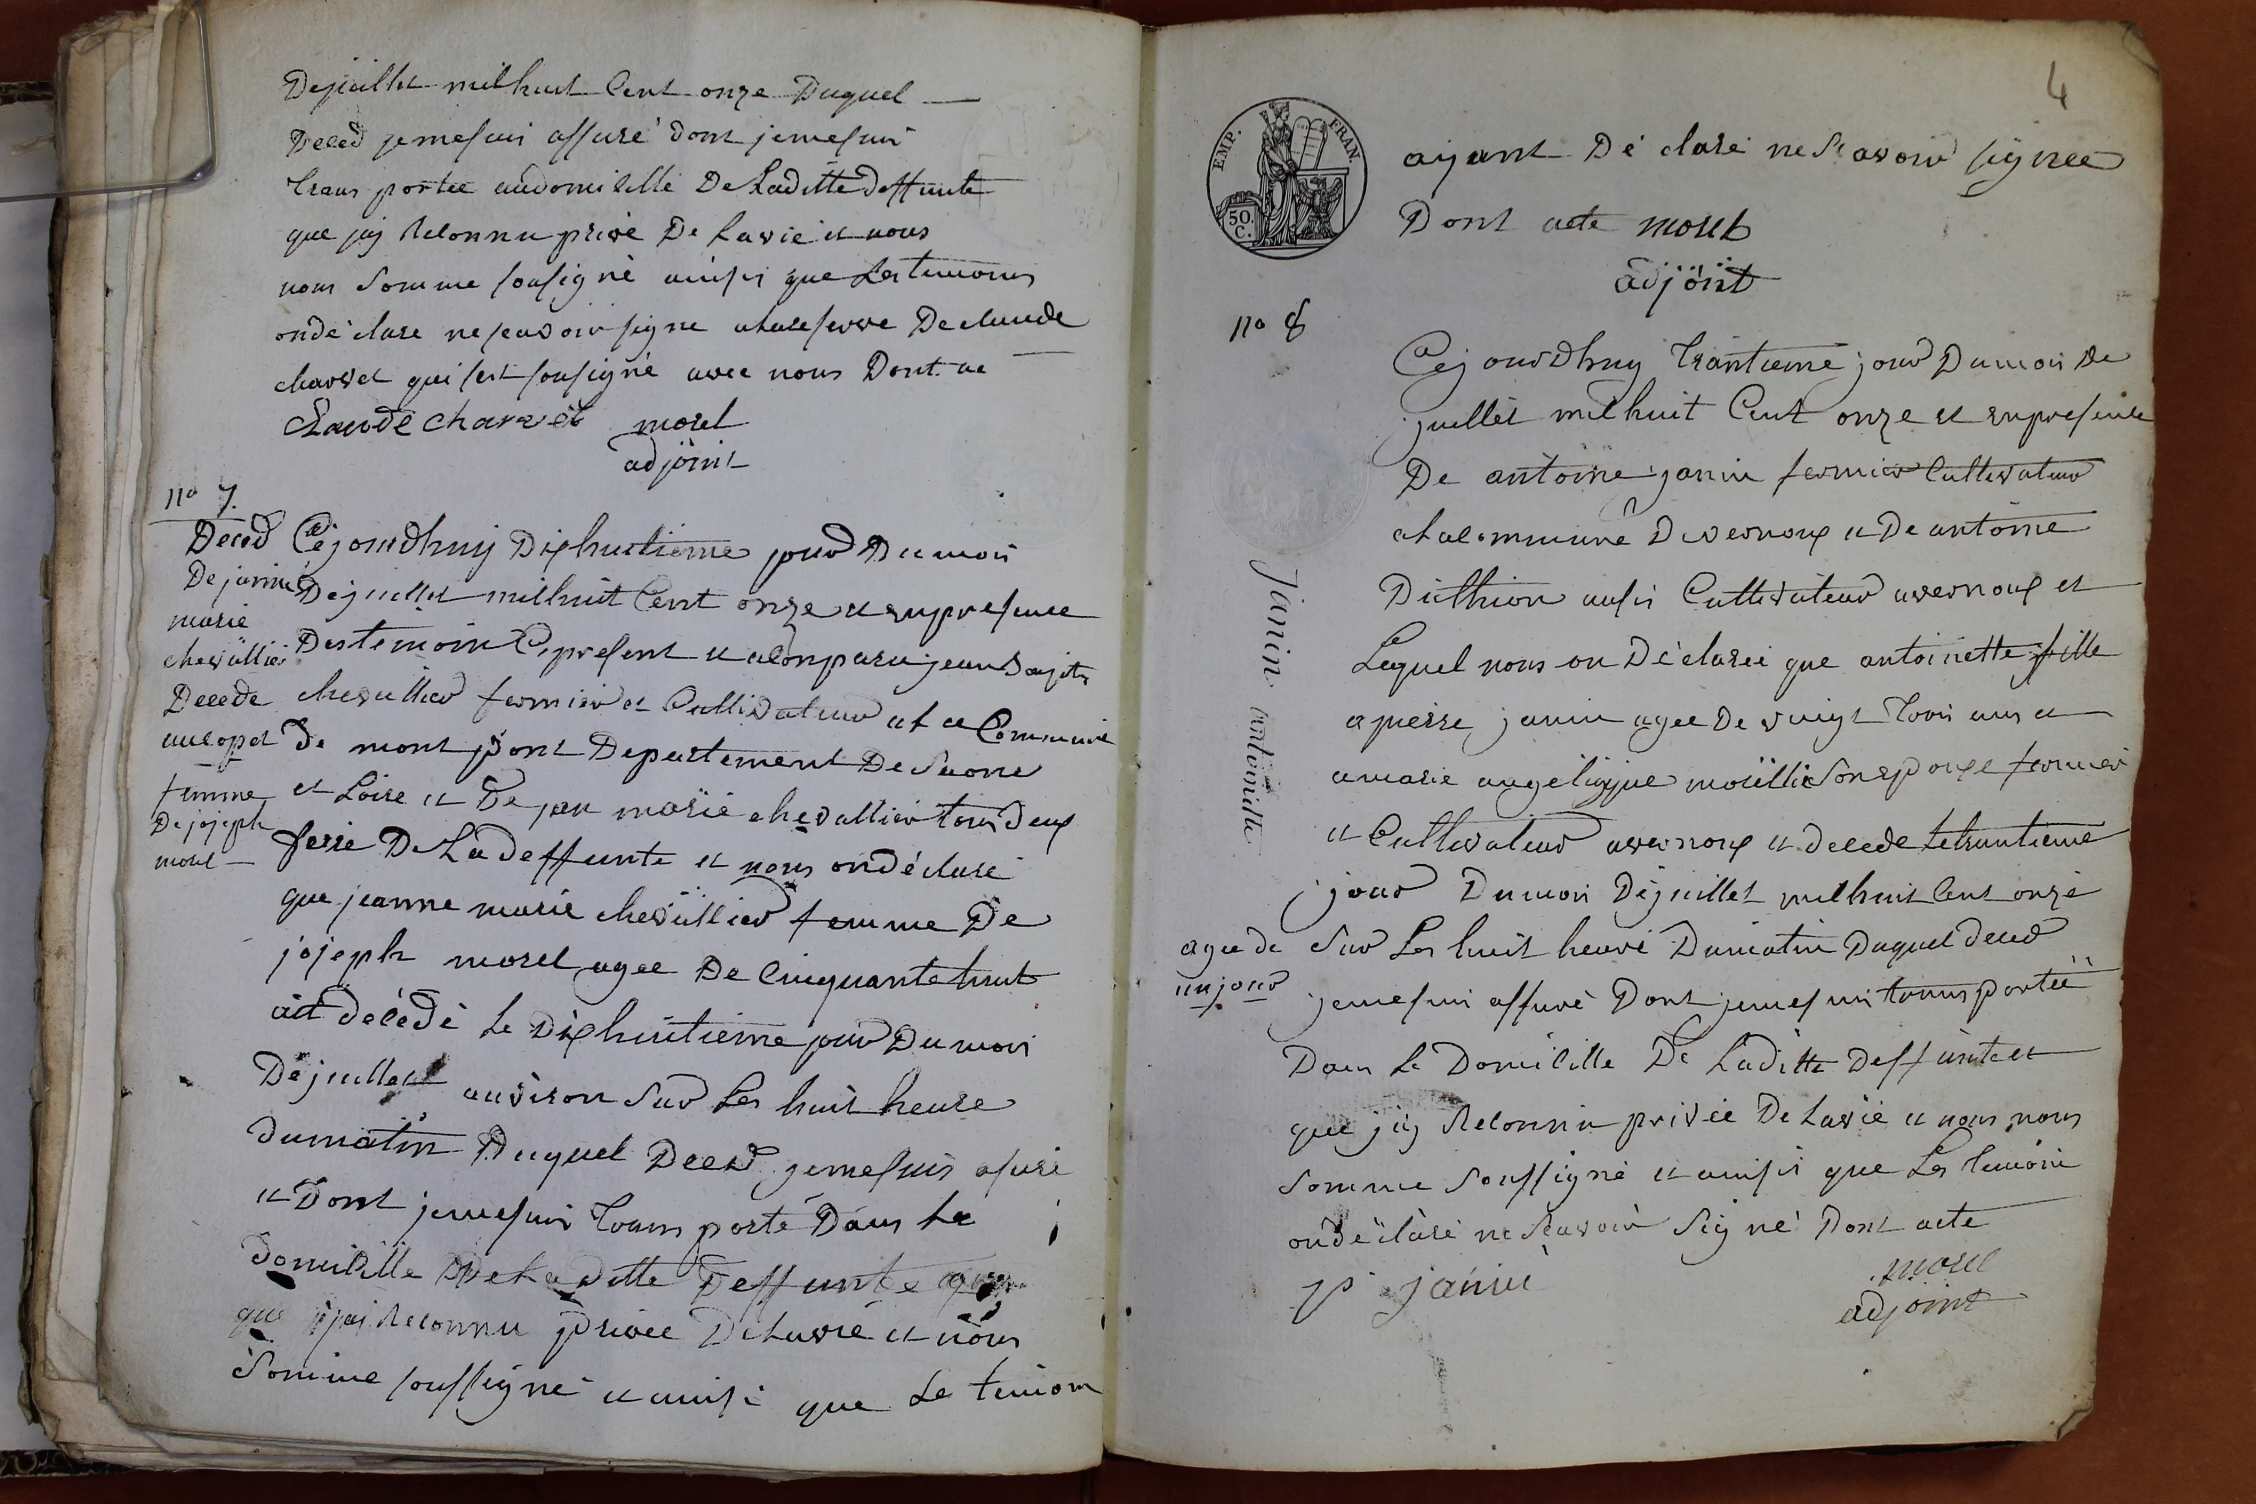 Dejuillet milhuit Cent onze Duquel
Deced jemesuis assuré dont jemesuis
trans portée audomicille De Laditte deffunte
que jay Reconnu privé De Lavie et nous
nous Somme sousigné ainsi que Les temoins
ondéclare nescavoir signe alareserve De claude
charvet qui sest sousigné avec nous Dont ac
Claude charvet morel
adjoint
no 7.
Deced
De jeanne
marie
chevallier
Decede
aulopet
femme
De jojeph
morel
Cejourdhuy Dixhuitieme jour Du mois
Dejuillet milhuit Cent onze et enpresence
Destemoin Cy present et aConparu jean Bajite
chevallier fermier et Cultivateur at ce Commune
de mont pont Departement De Saone
et Loire et De jan marie chevallier tous deux
frere De La deffunte et nous ondéclare
que jeanne marie chevallier femme De
jojeph morel agee De Cinquante huit
ait décédé Le Dixhuitieme jour Du mois
Dejuillet anviron Sur Les huit heure
Dumatin Duquel Deced jemesuis asuré
et Dont jemesuis trans porté Dans Le
domicille De Laditte Deffunte
que jai Reconnu privee DeLavie et nous
Somme soussigné et ainsi que Le temoin
4
EMP. FRAN.
50.
C.
ayant Dé claré ne Scavoir signee
Dont acte morel
adjoint
no 8
Janin antoinette
agee de
un jour
Cejourdhuy trantieme jour Dumois De
juillet milhuit Cent onze et enpresence
De antoine janin fermier Cultivateur
at alcommune De vernoux et De antoine
Duthion ausis Cultivateur avernoux et
Lequel nous on Déclareé que antoinette fille
a pierre janin agee De vingt trois ans et
a marie angeliqque morillie Sonepouse fermier
et Cultivateur avernoux et decede Letrantieme
jour Dumois Dejuillet milhuit Cent onze
Sur Les huit heure Dumatin Duquel deced
jemesuis assuré Dont jemesuis transportéé
Dans Le Domicille De Laditte Deffunte et
que jay Reconnu privée De Lavie et nous nous
Somme Soussigné et ainsis que Les temoin
ondéclaré ne Scavoir Signé Dont acte
P janin morel
adjoint